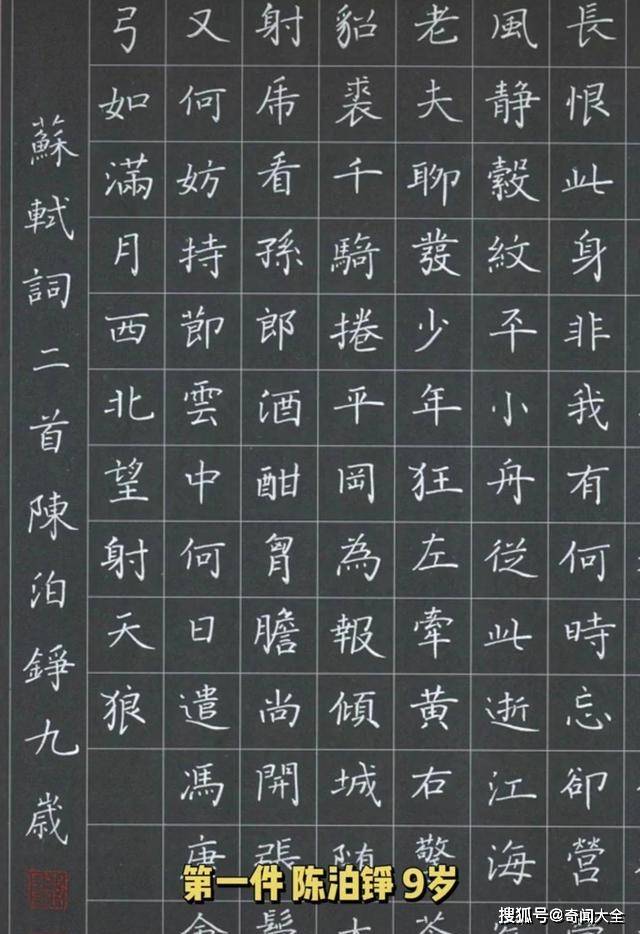 長恨此身非我有何時忘卻營
風靜縠紋平小舟從此逝江海
老夫聊發少年狂左牽黃右擎
貂裘千騎捲平岡為報傾城随
射虎看孫郎酒酣胷膽尚開張
又何妨持節雲中何日遣馮唐
弓如滿月西北望射天狼
蘇軾詞二首陳泊錚九歲
第一件 陈泊铮 9岁
搜狐号@奇闻大全